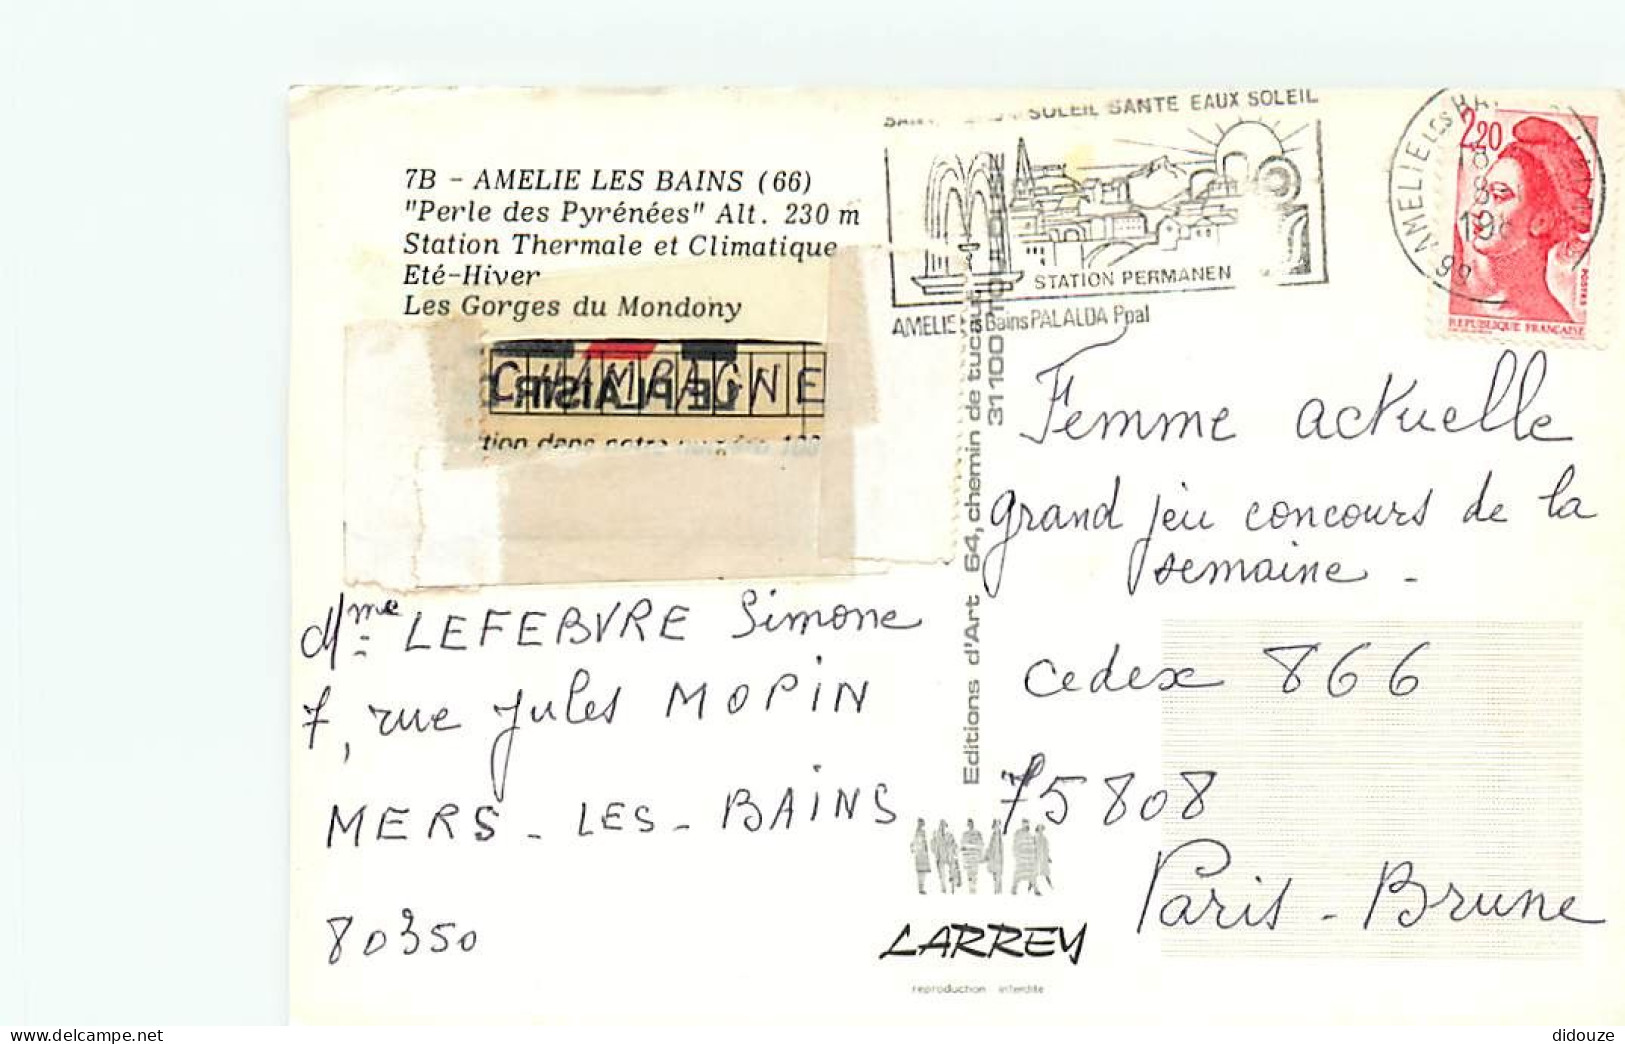 7B - AMELIE LES BAINS (66)
"Perle des Pyrénées" Alt. 230 m
Station Thermale et Climatique
Eté-Hiver
Les Gorges du Mondony
CHAMPAGNE
LE PLAISIR
tion dans notre
Mme LEFEBVRE Simone
7, rue Jules MOPIN
MERS-LES-BAINS
80350
SOLEIL SANTE EAUX SOLEIL
STATION PERMANEN
AMELIE les Bains PALALDA Ppal
AMELIE LES BAI
66
2,20
POSTES
REPUBLIQUE FRANÇAISE
Editions d'Art 64, chemin de tucaut
31100 TOULOUSE
Femme actuelle
grand jeu concours de la
semaine -
cedex 866
75808
Paris - Brune
LARREY
reproduction interdite
didouze